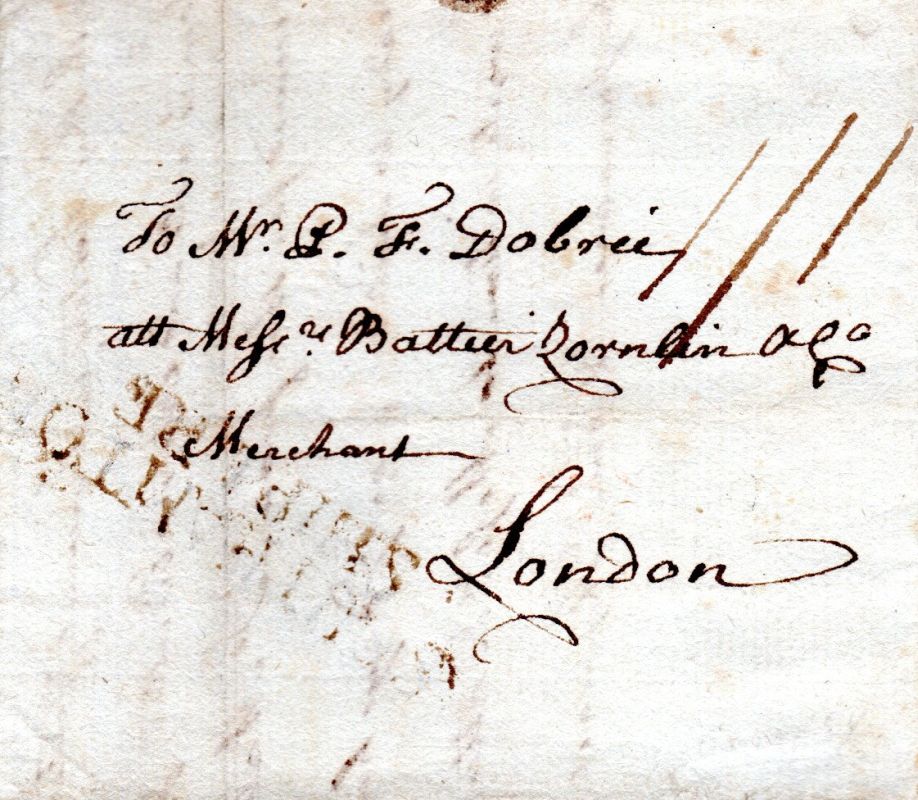 To Mr. P. F. Dobree
att Messrs. Battier Zornlin & Co
Merchant
London